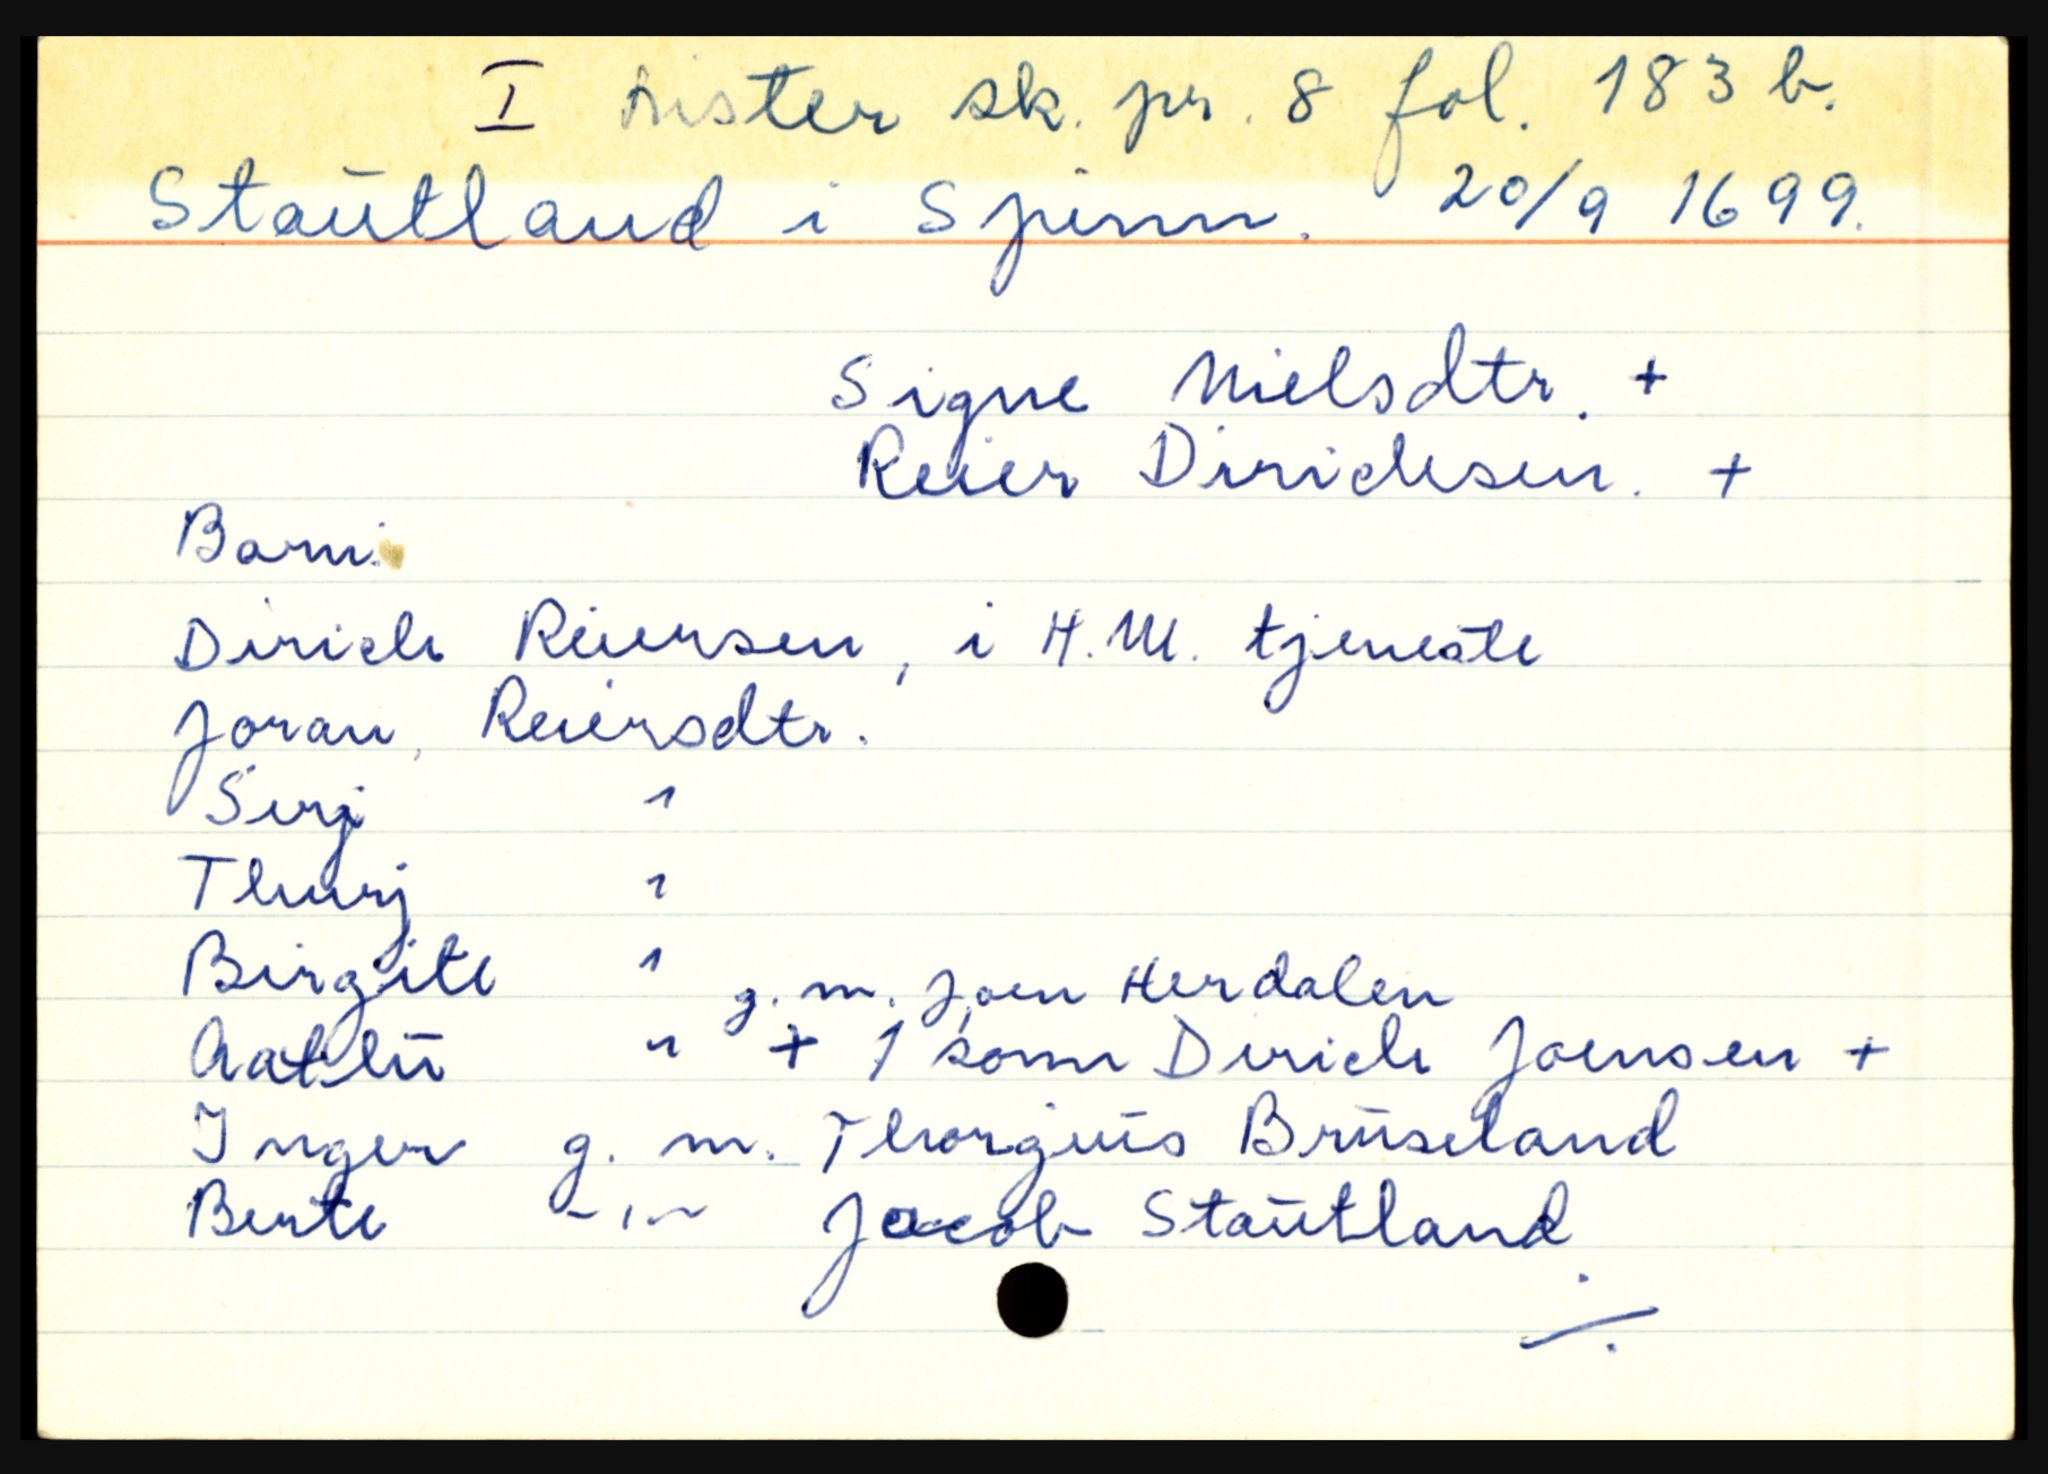 I Lister sk. pr. 8 fol. 183 b.
Staütland i Spinn. 20/9 1699.
Signe Nielsdtr. +
Reier Dirichsen. +
Barn:
Dirich Reiersen, i H.M. tjeneste
Joran, Reiersdtr.
Sirj "
Thurj "
Birgite " g. m. Joen Herdalen
Aatlü " + 1 sønn Dirich Joensen +
Inger g. m. Thorgiüs Brüseland
Berte -"- Jacob Staütland